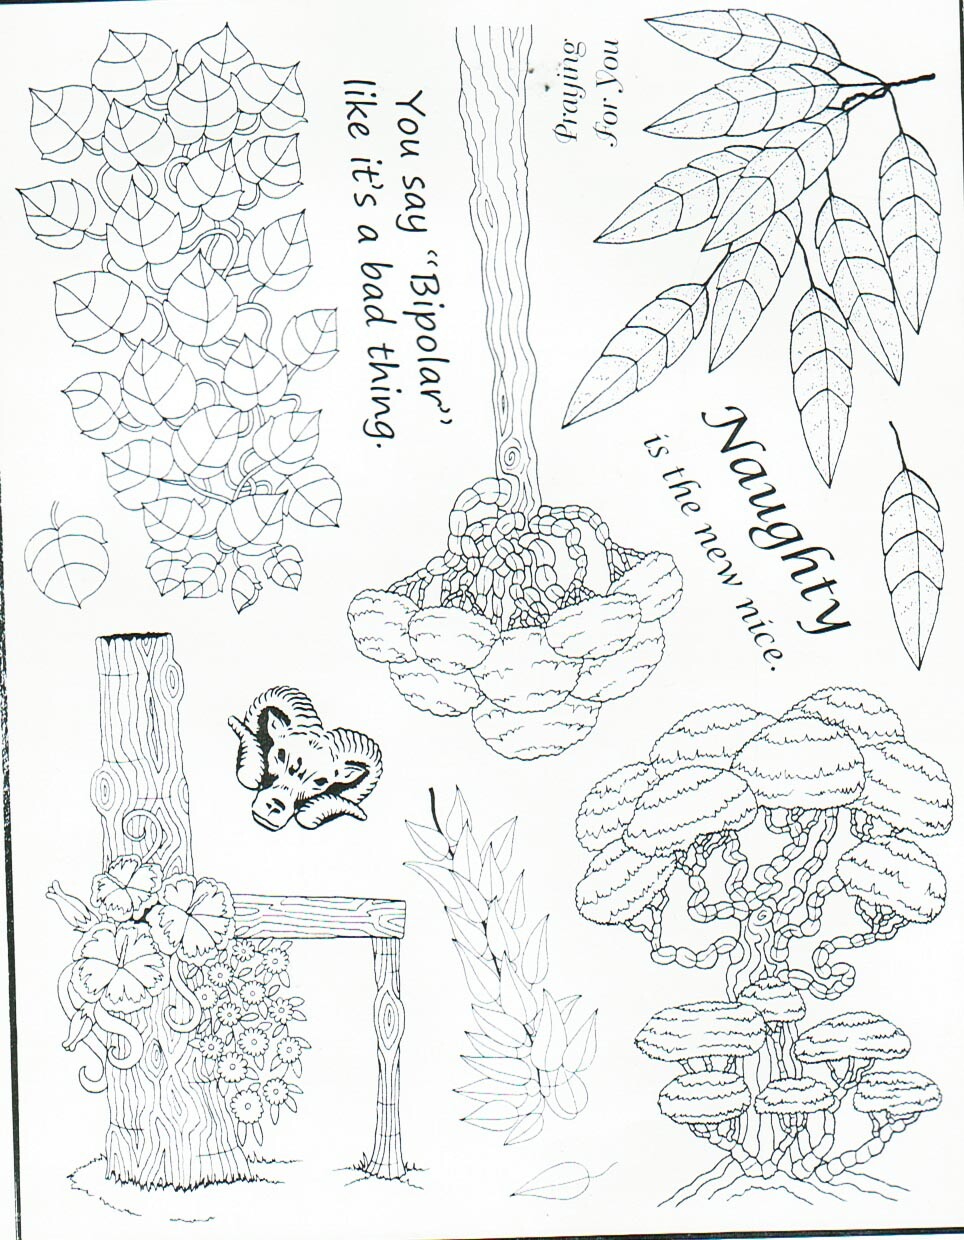 Praying
for You
You say “Bipolar”
like it's a bad thing.
Naughty
is the new nice.